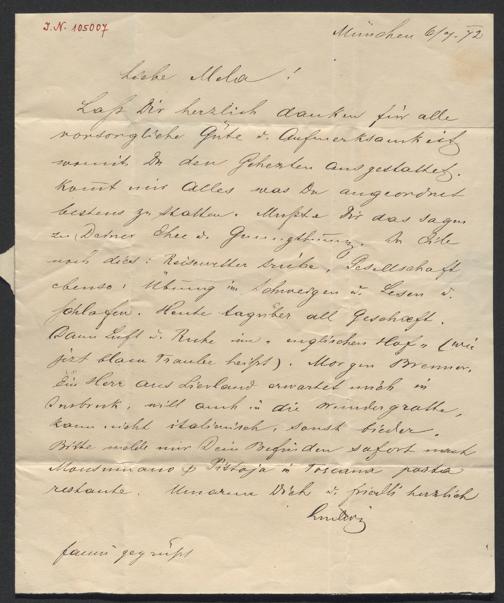 I.N. 105007
München 6/7. 72
Liebe Mela!
Laß Dir herzlich danken für alle
vorsorgliche Güte u. Aufmerksamkeit
womit Du den Gehezten ausgestattet.
Kom̄t mir Alles was Du angeordnet
bestens zu statten. Mußte Dir das sagen
zu Deiner Ehre u. Genugthuung. In Eile
noch dies: Reisewetter trübe, Gesellschaft
ebenso; Übung im Schweigen u. Lesen u.
schlafen. Heute tagsüber all Geschäft.
Dann Luft u. Ruhe im "englischen Hof" (wie
jezt blaue Traube heißt). Morgen Brenner,
Ein Herr aus Lievland erwartet mich in
Insbruk, will auch in die Wundergrotte,
kann nicht italienisch, sonst bieder.
Bitte melde mir Dein Befinden sofort nach
Monsummano p Pistoja in Toscana posta
restante. Umarme Dich u. herzlich
gegrüßt